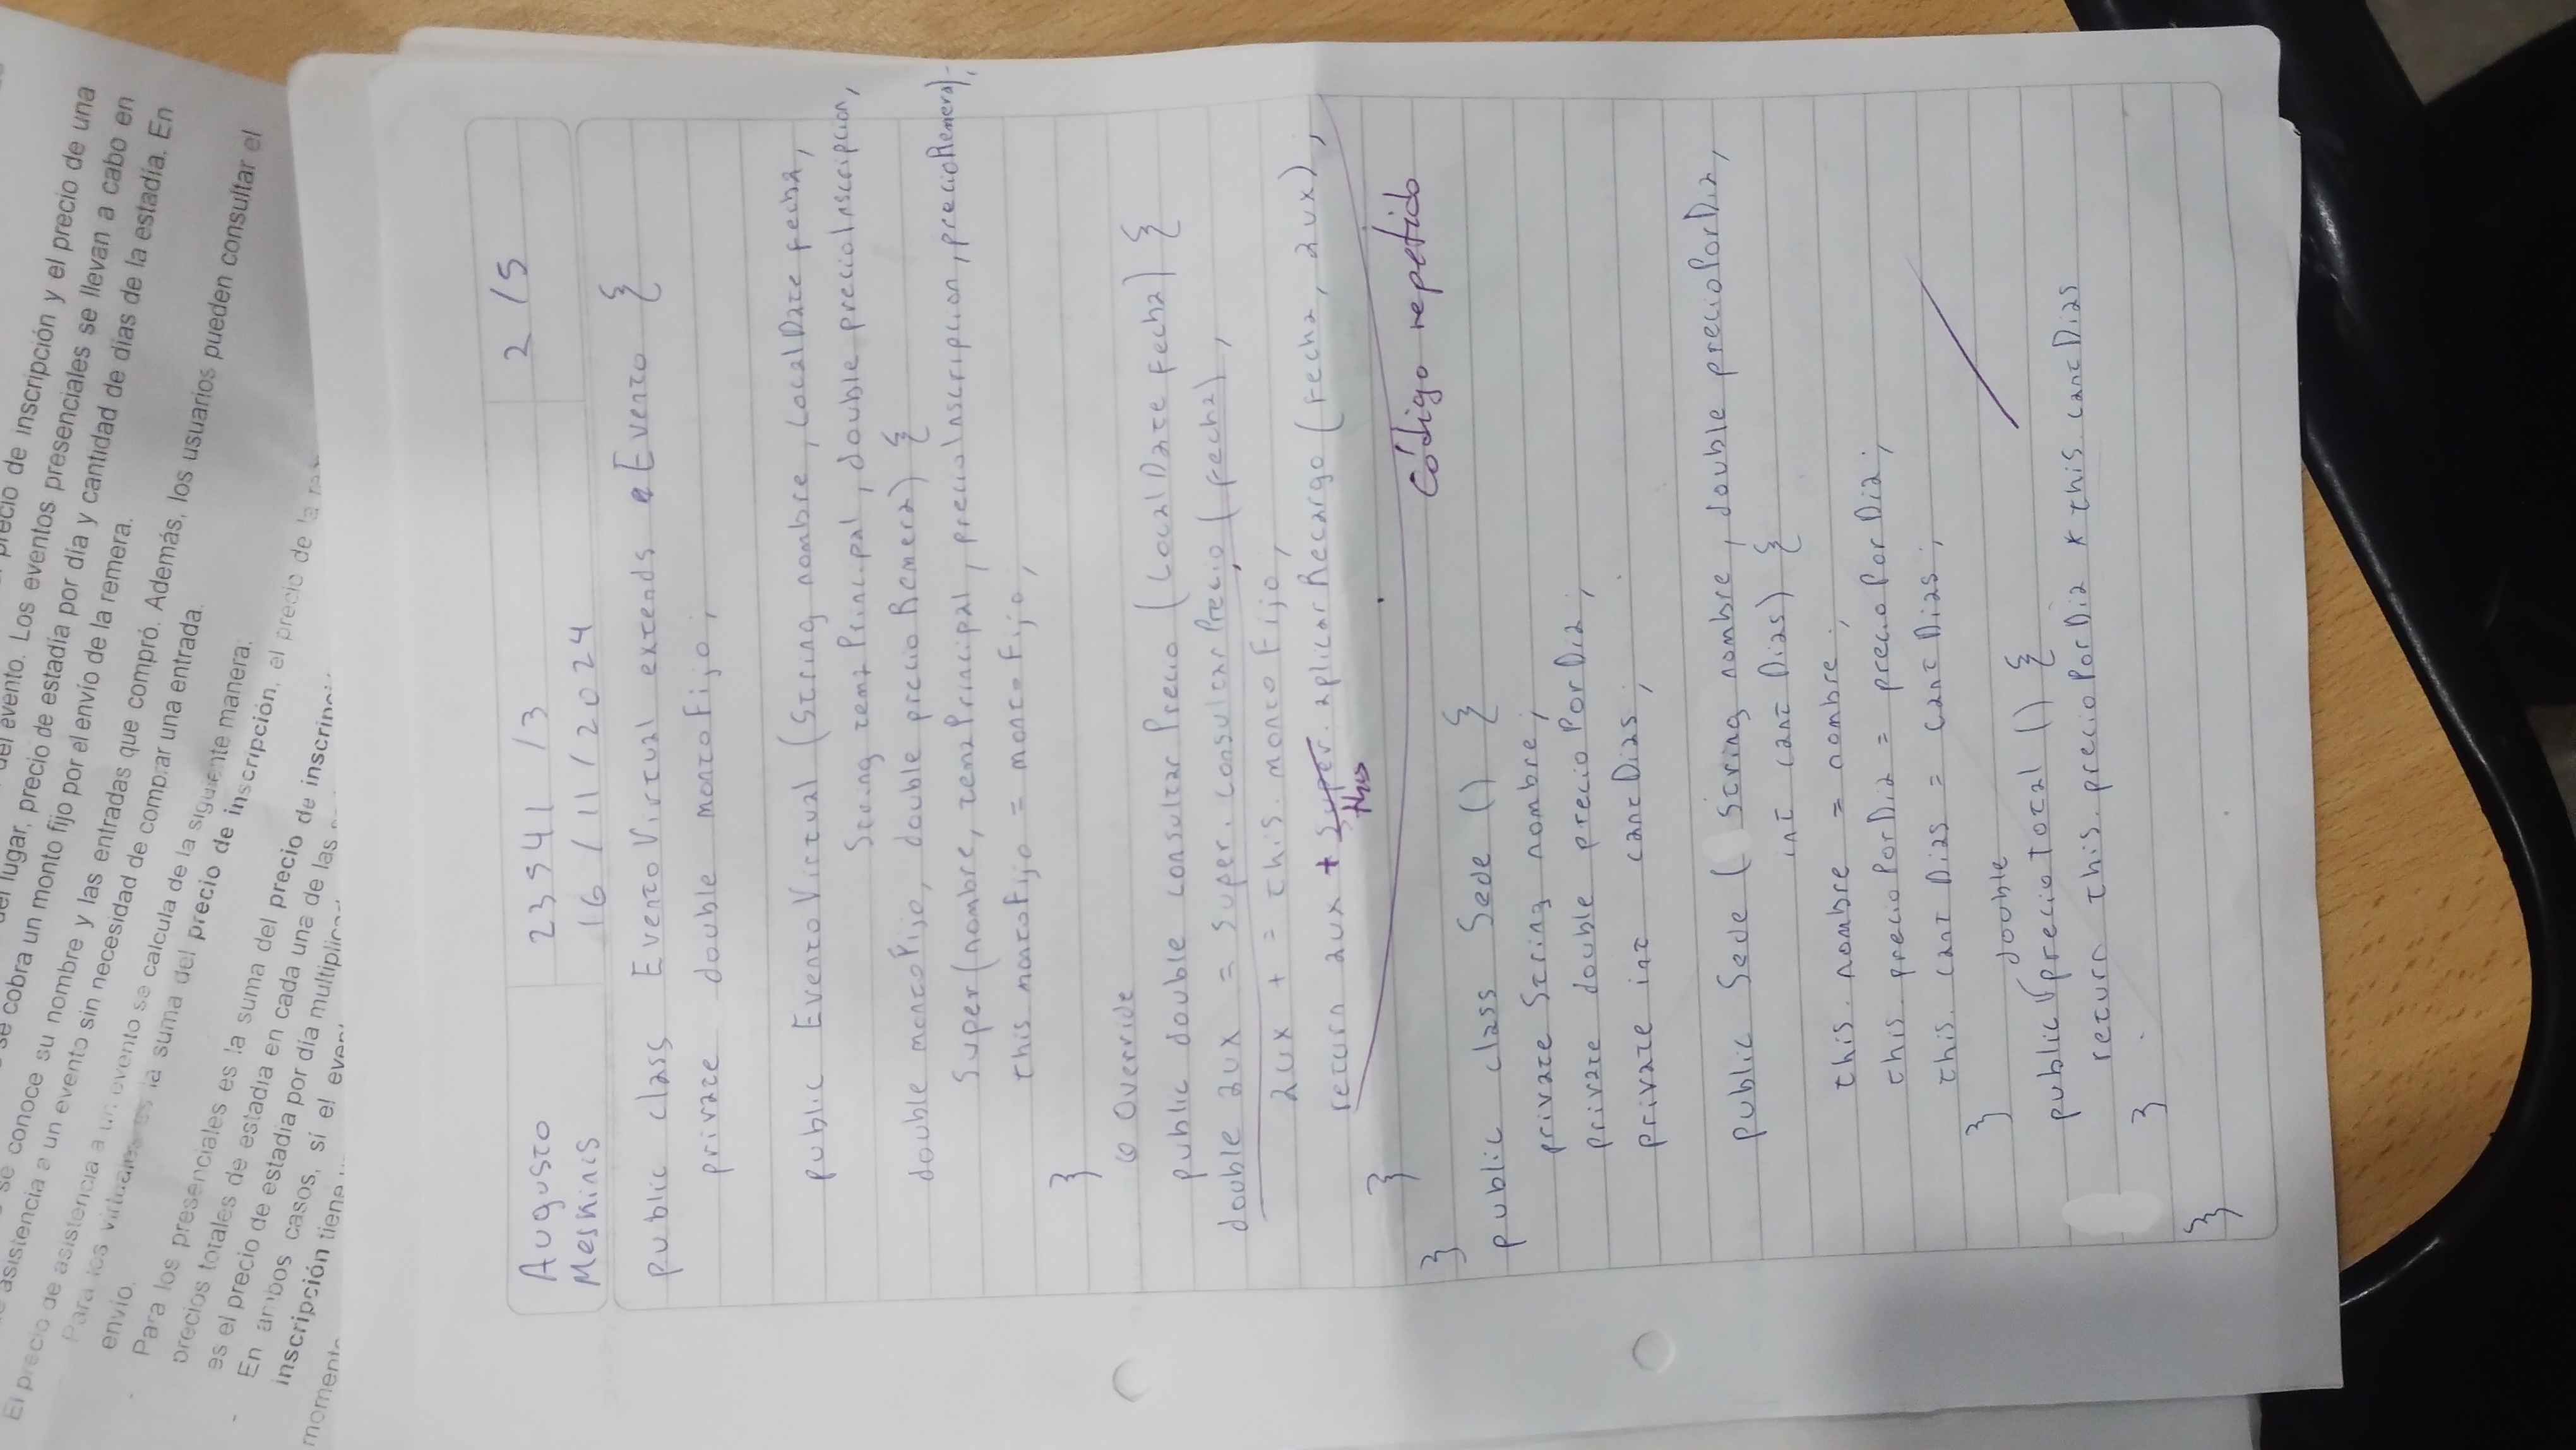 precio de inscripción y el precio de una
del evento. Los eventos presenciales se llevan a cabo en
del lugar, precio de estadía por día y cantidad de días de la estadía. En
se cobra un monto fijo por el envío de la remera.
se conoce su nombre y las entradas que compró. Además, los usuarios pueden consultar el
asistencia a un evento sin necesidad de comprar una entrada.
El precio de asistencia a un evento se calcula de la siguiente manera:
Para los virtuales es la suma del precio de inscripción, el precio de la
envío.
- Para los presenciales es la suma del precio de
precios totales de estadía en cada una de las
es el precio de estadía por día
- En ambos casos, si el
inscripción tiene
Augusto 23541 /3 2 /5
Meskinis 16 / 11 / 2024
public class EventoVirtual extends Evento {
private double montoFijo;
public EventoVirtual (String nombre, LocalDate fecha,
String temaPrincipal, double precioInscripcion,
double montoFijo, double precioRemera) {
super(nombre, temaPrincipal, precioInscripcion, precioRemera);
this.montoFijo = montoFijo;
}
@Override
public double consultarPrecio (LocalDate fecha) {
double aux = super.consultarPrecio(fecha);
aux += this.montoFijo;
return aux + super.aplicarRecargo (fecha, aux);
this
}
Código repetido
}
public class Sede () {
private String nombre;
private double precioPorDia;
private int cantDias;
public Sede ( String nombre, double precioPorDia,
int cantDias) {
this.nombre = nombre;
this.precioPorDia = precioPorDia;
this.cantDias = cantDias;
}
double
public precioTotal () {
return this.precioPorDia * this.cantDias
}
}